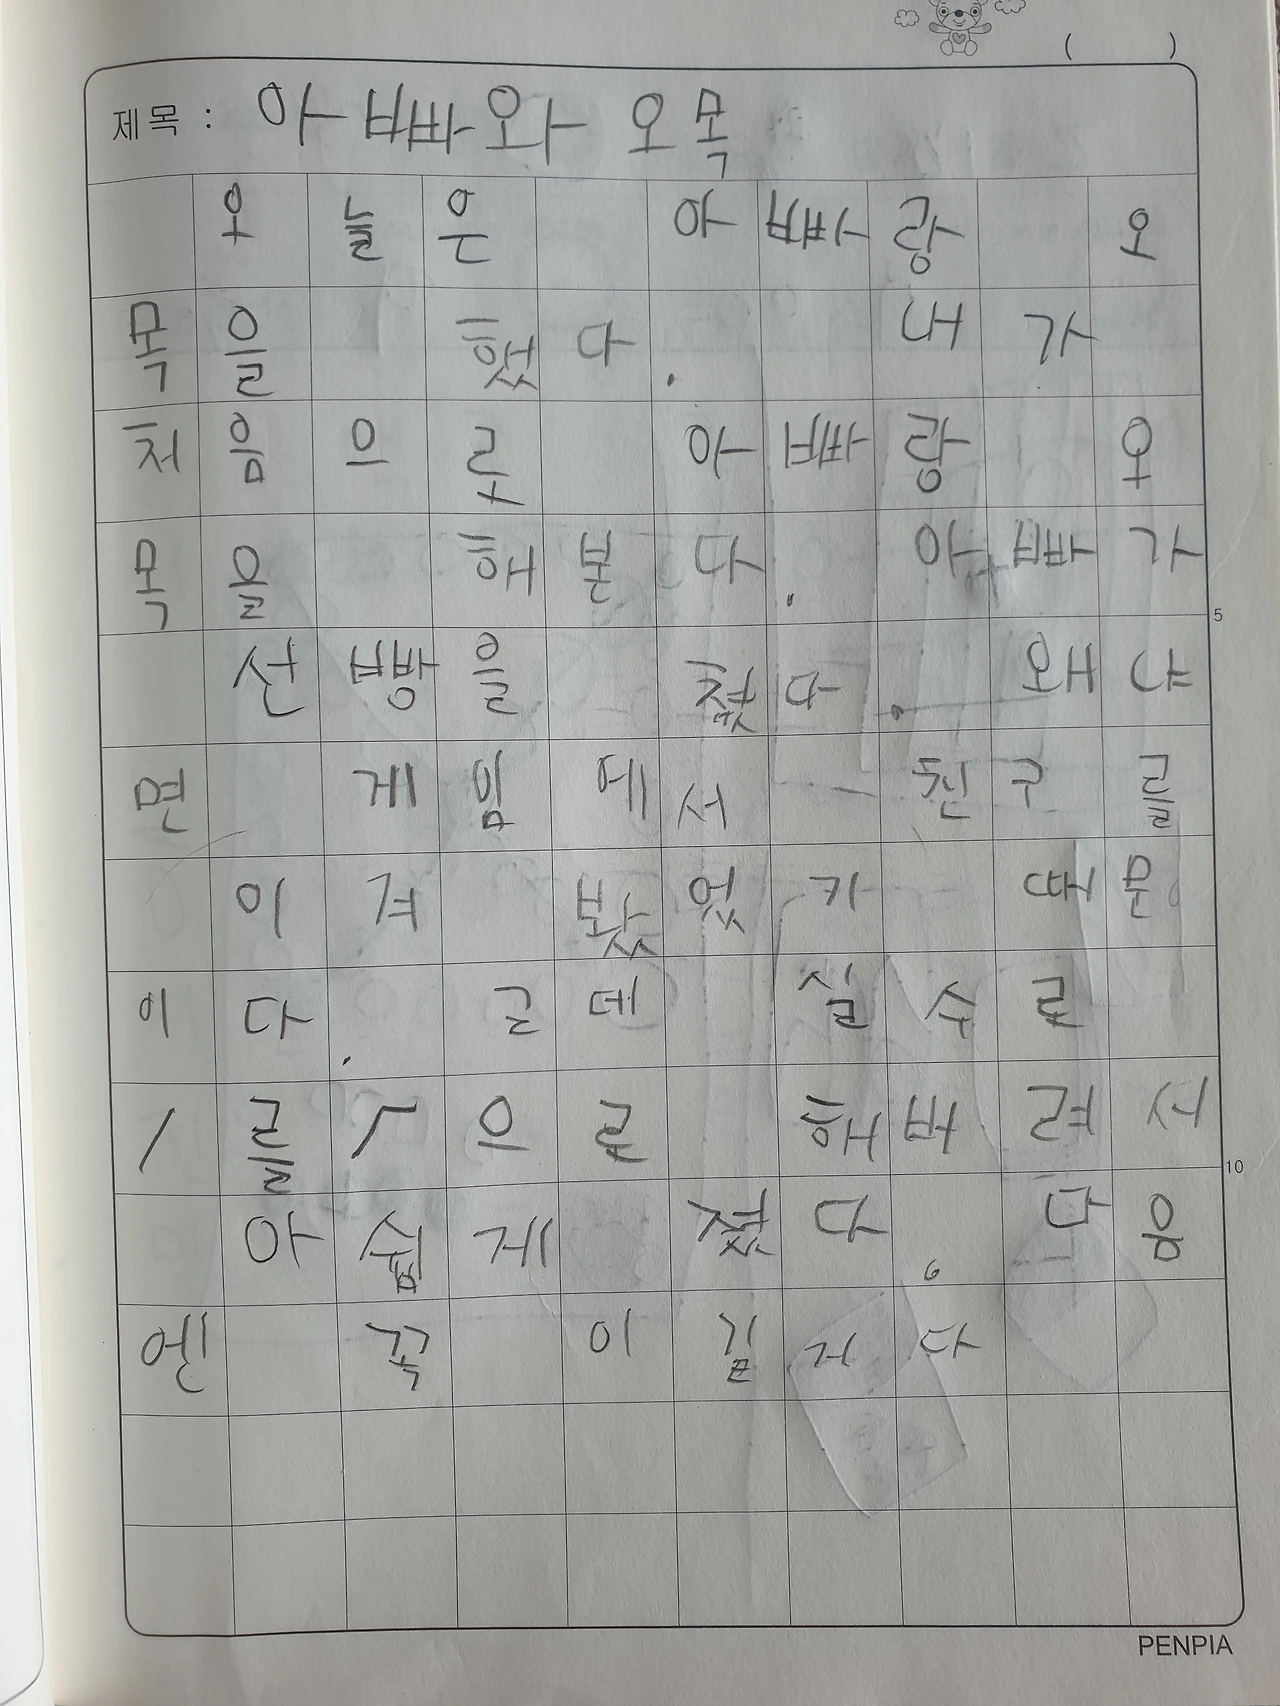 (      )
제목 : 아빠와 오목
오늘은 아빠랑 오
목을 했다. 내가
처음으로 아빠랑 오
목을 해본다. 아빠가
선빵을 쳤다. 왜냐
면 게임에서 친구를
이겨 봤었기 때문
이다. 근데 실수로
/를 ㄱ으로 해버려서
아쉽게 졌다. 다음
엔 꼭 이길거다
5
10
PENPIA